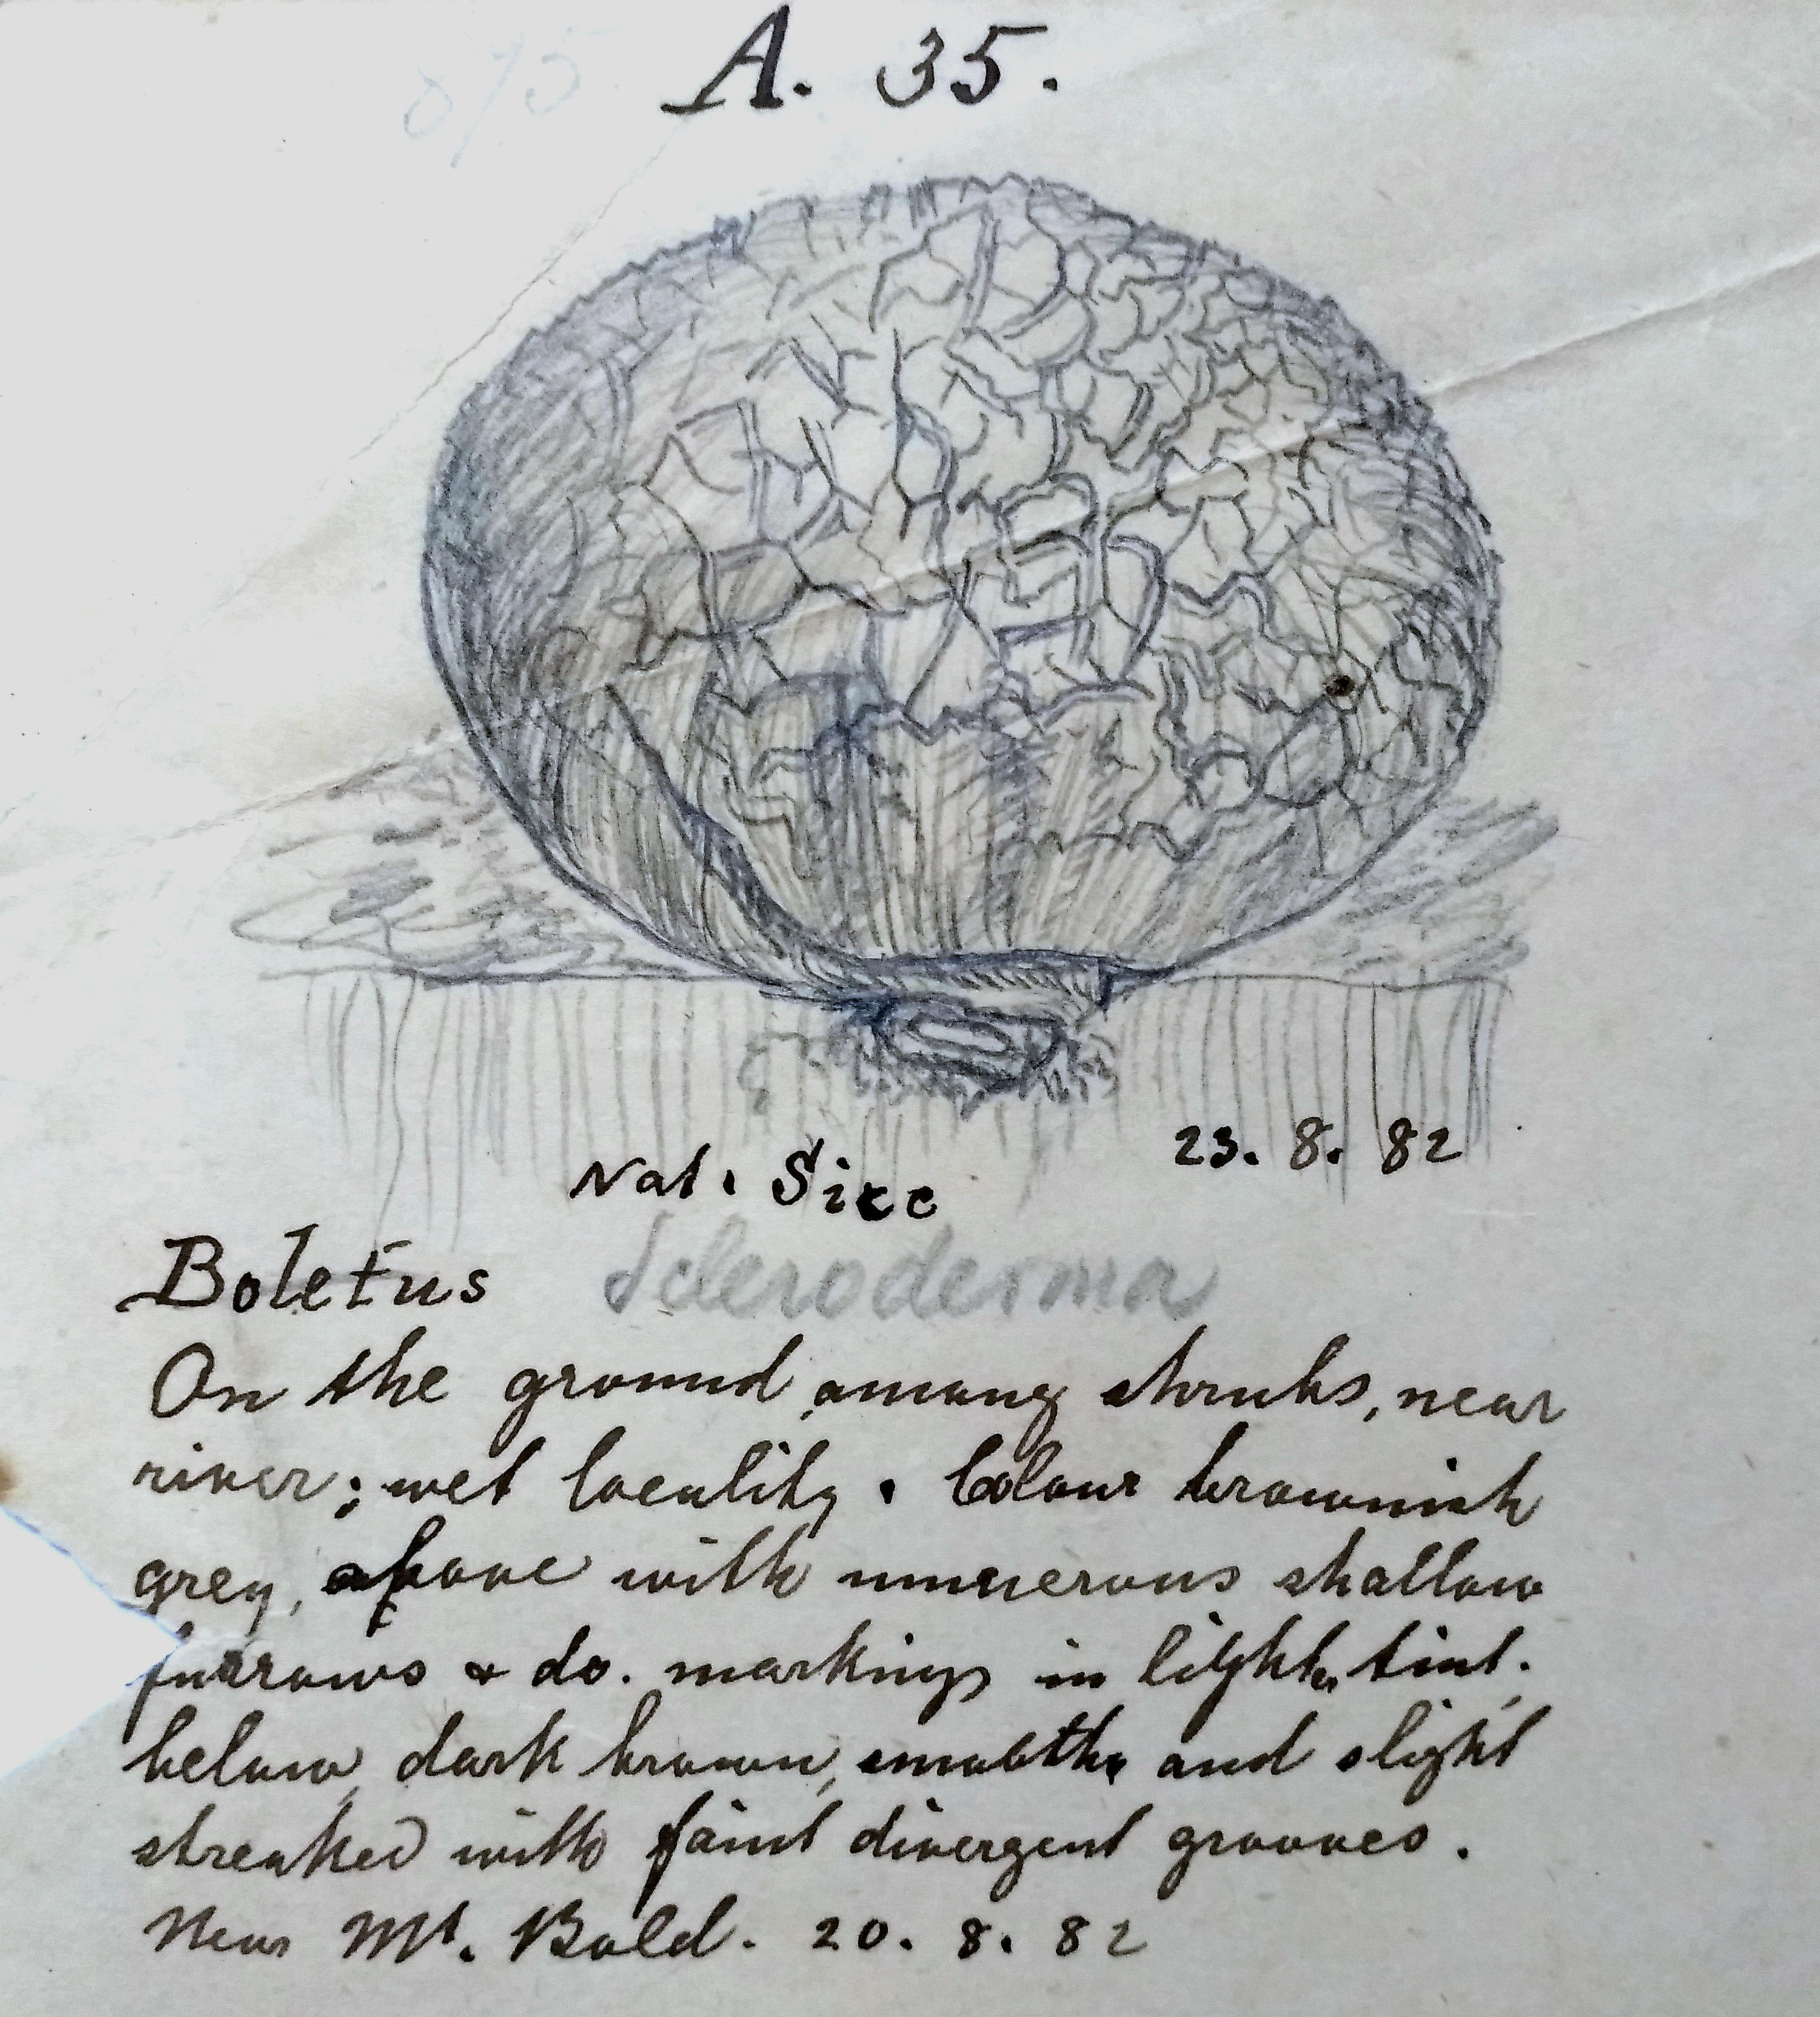 875.
A. 35.
Nat. Size
23. 8. 82
Boletus Scleroderma
On the ground, among shrubs, near
river; wet locality. Colour brownish
grey, above with numerous shallow
furrows & do. markings in lighter tint.
below, dark brown, smooth, and slight
streaked with faint divergent grooves.
Near Mt. Bold. 20. 8. 82